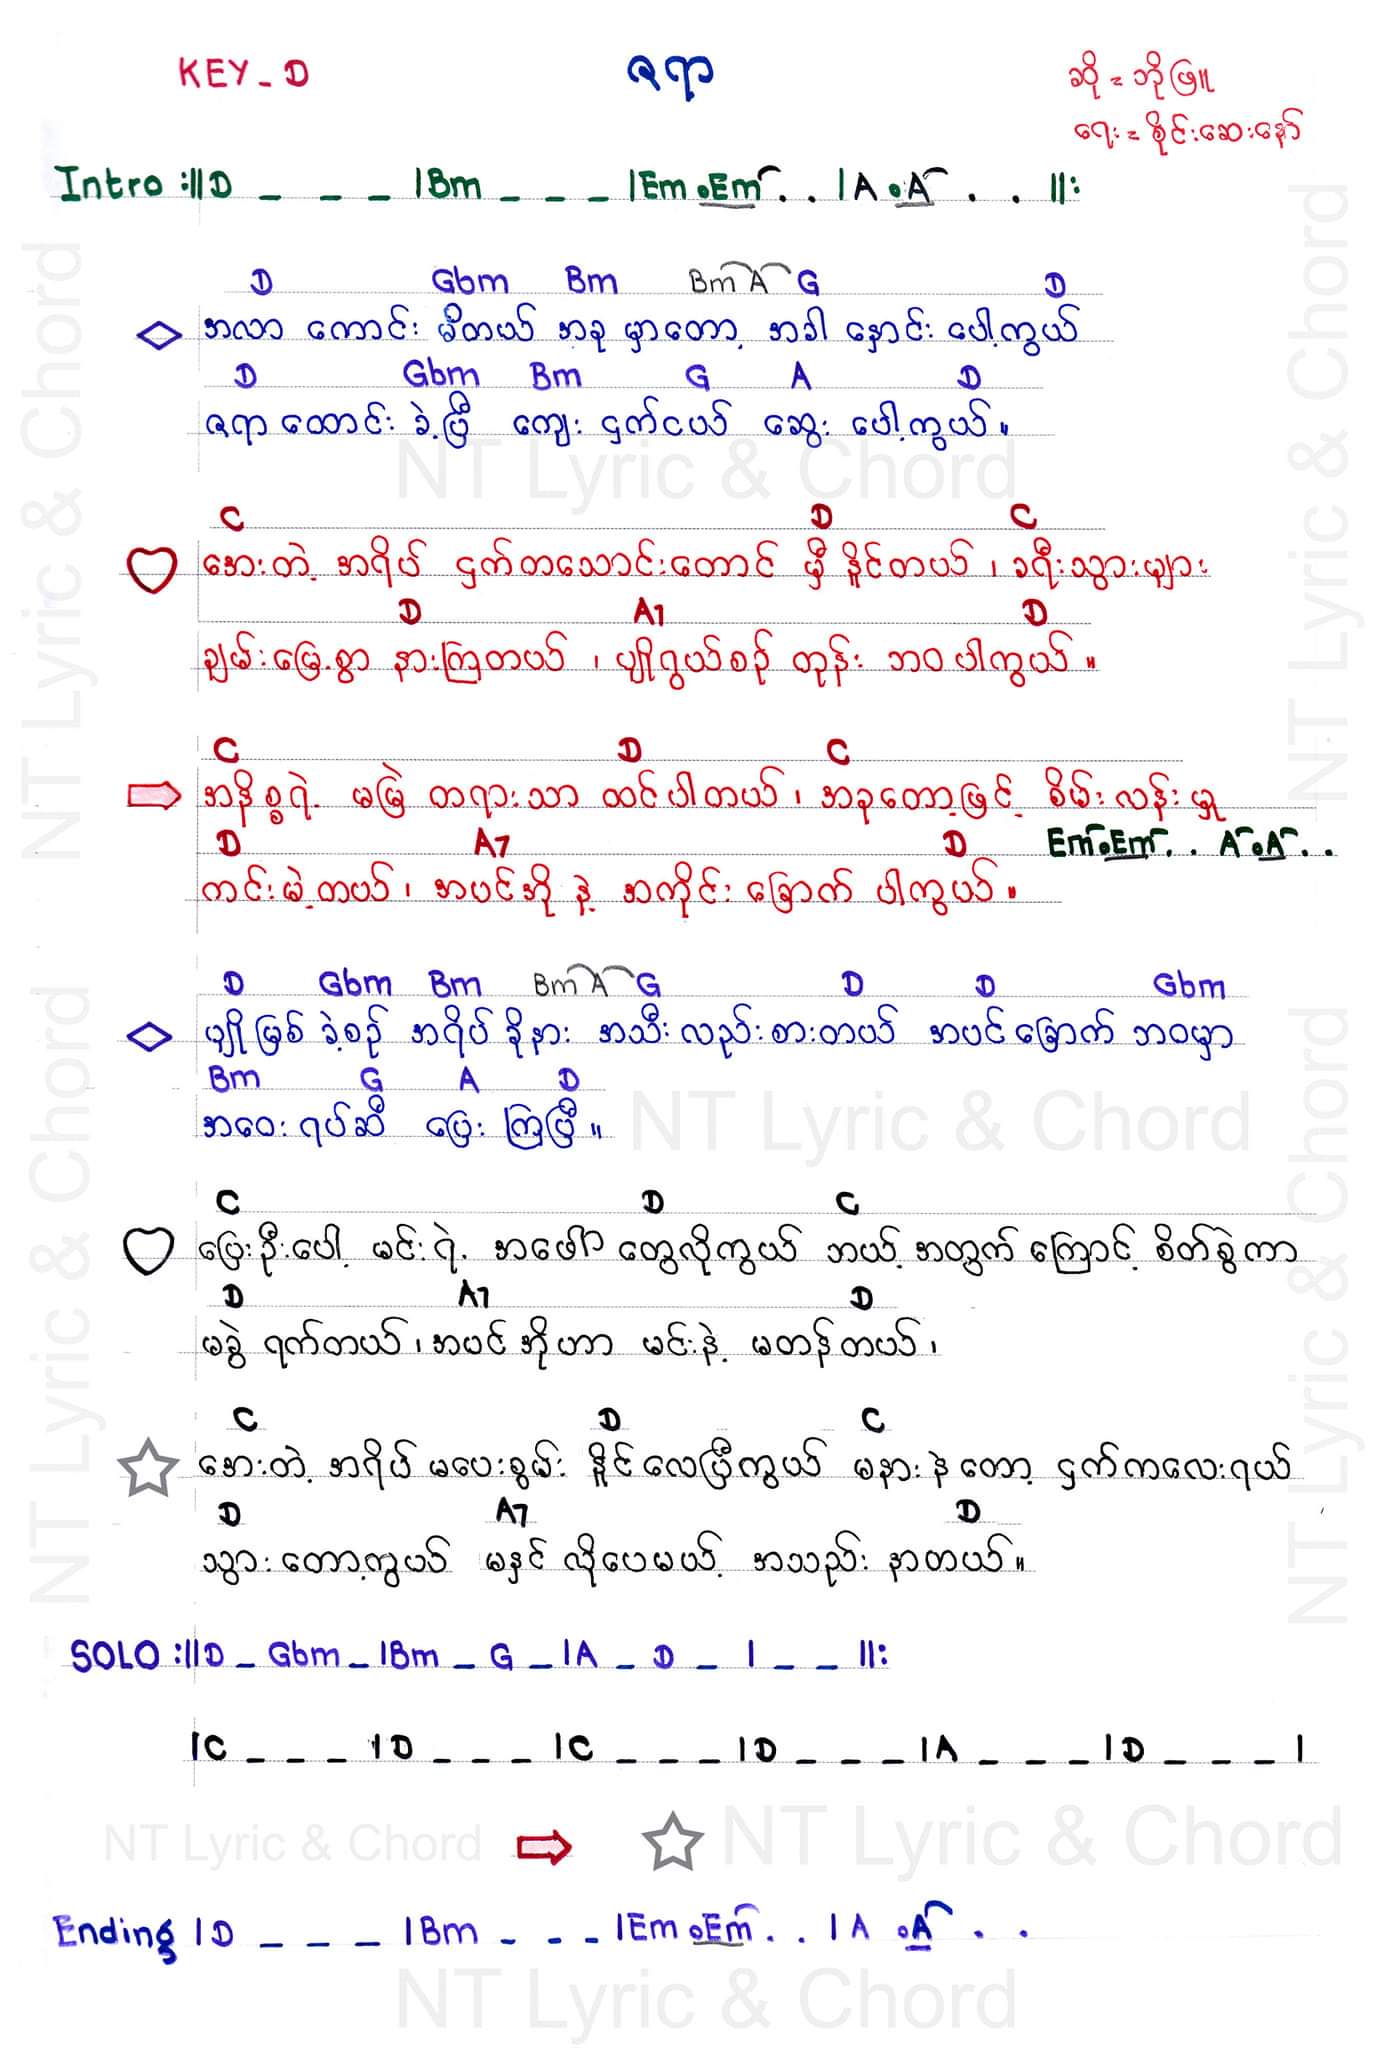 KEY - D
ဇရာ
ဆို = ဘိုဖြူ
ရေး = စိုင်းဆေးနော်
Intro :||D _ _ _ |Bm _ _ _ |Em .Em . . |A .A . . ||:
D Gbm Bm Bm A G D
အလာ ကောင်း မိတယ် အခု မှာတော့ အခါ နှောင်း ပေါ့ကွယ်
D Gbm Bm G A D
ဇရာ ထောင်း ခဲ့ပြီ ကျေး ငှက်ငယ် ဆွေး ပေါ့ကွယ်။
C D C
အေးတဲ့ အရိပ် ငှက်တသောင်းတောင် မှီ နိူင်တယ် ၊ ခရီးသွားများ
D A7 D
ချမ်းမြေ့စွာ နားကြတယ် ၊ ပျိုရွယ်စဉ် တုန်း ဘဝ ပါကွယ် ။
C D C
အနိစ္စရဲ့ မမြဲ တရားသာ ထင်ပါတယ် ၊ အခုတော့ဖြင့် စိမ်းလန်း မှု
D A7 D Em .Em . . A .A . .
ကင်းမဲ့တယ် ၊ အပင်အို နဲ့ အကိုင်း ခြောက် ပါကွယ် ။
D Gbm Bm Bm A G D D Gbm
ပျိုမြစ် ခဲ့စဉ် အရိပ် ခိုနား အသီးလည်းစားတယ် အပင်ခြောက် ဘဝမှာ
Bm G A D
အဝေး ရပ်ဆီ ပြေး ကြပြီ ။
C D C
ပြေးဦးပေါ့ မင်းရဲ့ အဖေါ် တွေလိုကွယ် ဘယ့် အတွက် ကြောင့် စိတ်စွဲကာ
D A7 D
မခွဲ ရက်တယ် ၊ အပင်အိုဟာ မင်းနဲ့ မတန်တယ် ၊
C D C
အေးတဲ့ အရိပ် မပေးစွမ်း နိူင်လေပြီကွယ် မနားနဲတော့ ငှက်ကလေးရယ်
D A7 D
သွားတော့ကွယ် မနှင် လိုပေမယ့် အသည်း နာတယ် ။
SOLO :||D _ Gbm _ |Bm _ G _ |A _ D _ | _ _ ||:
|C _ _ _ |D _ _ _ |C _ _ _ |D _ _ _ |A _ _ _ |D _ _ _ |
Ending |D _ _ _ |Bm - - - |Em .Em . . |A .A . .
NT Lyric & Chord
NT Lyric & Chord
NT Lyric & Chord
NT Lyric & Chord
NT Lyric & Chord
NT Lyric & Chord
NT Lyric & Chord
NT Lyric & Chord
NT Lyric & Chord